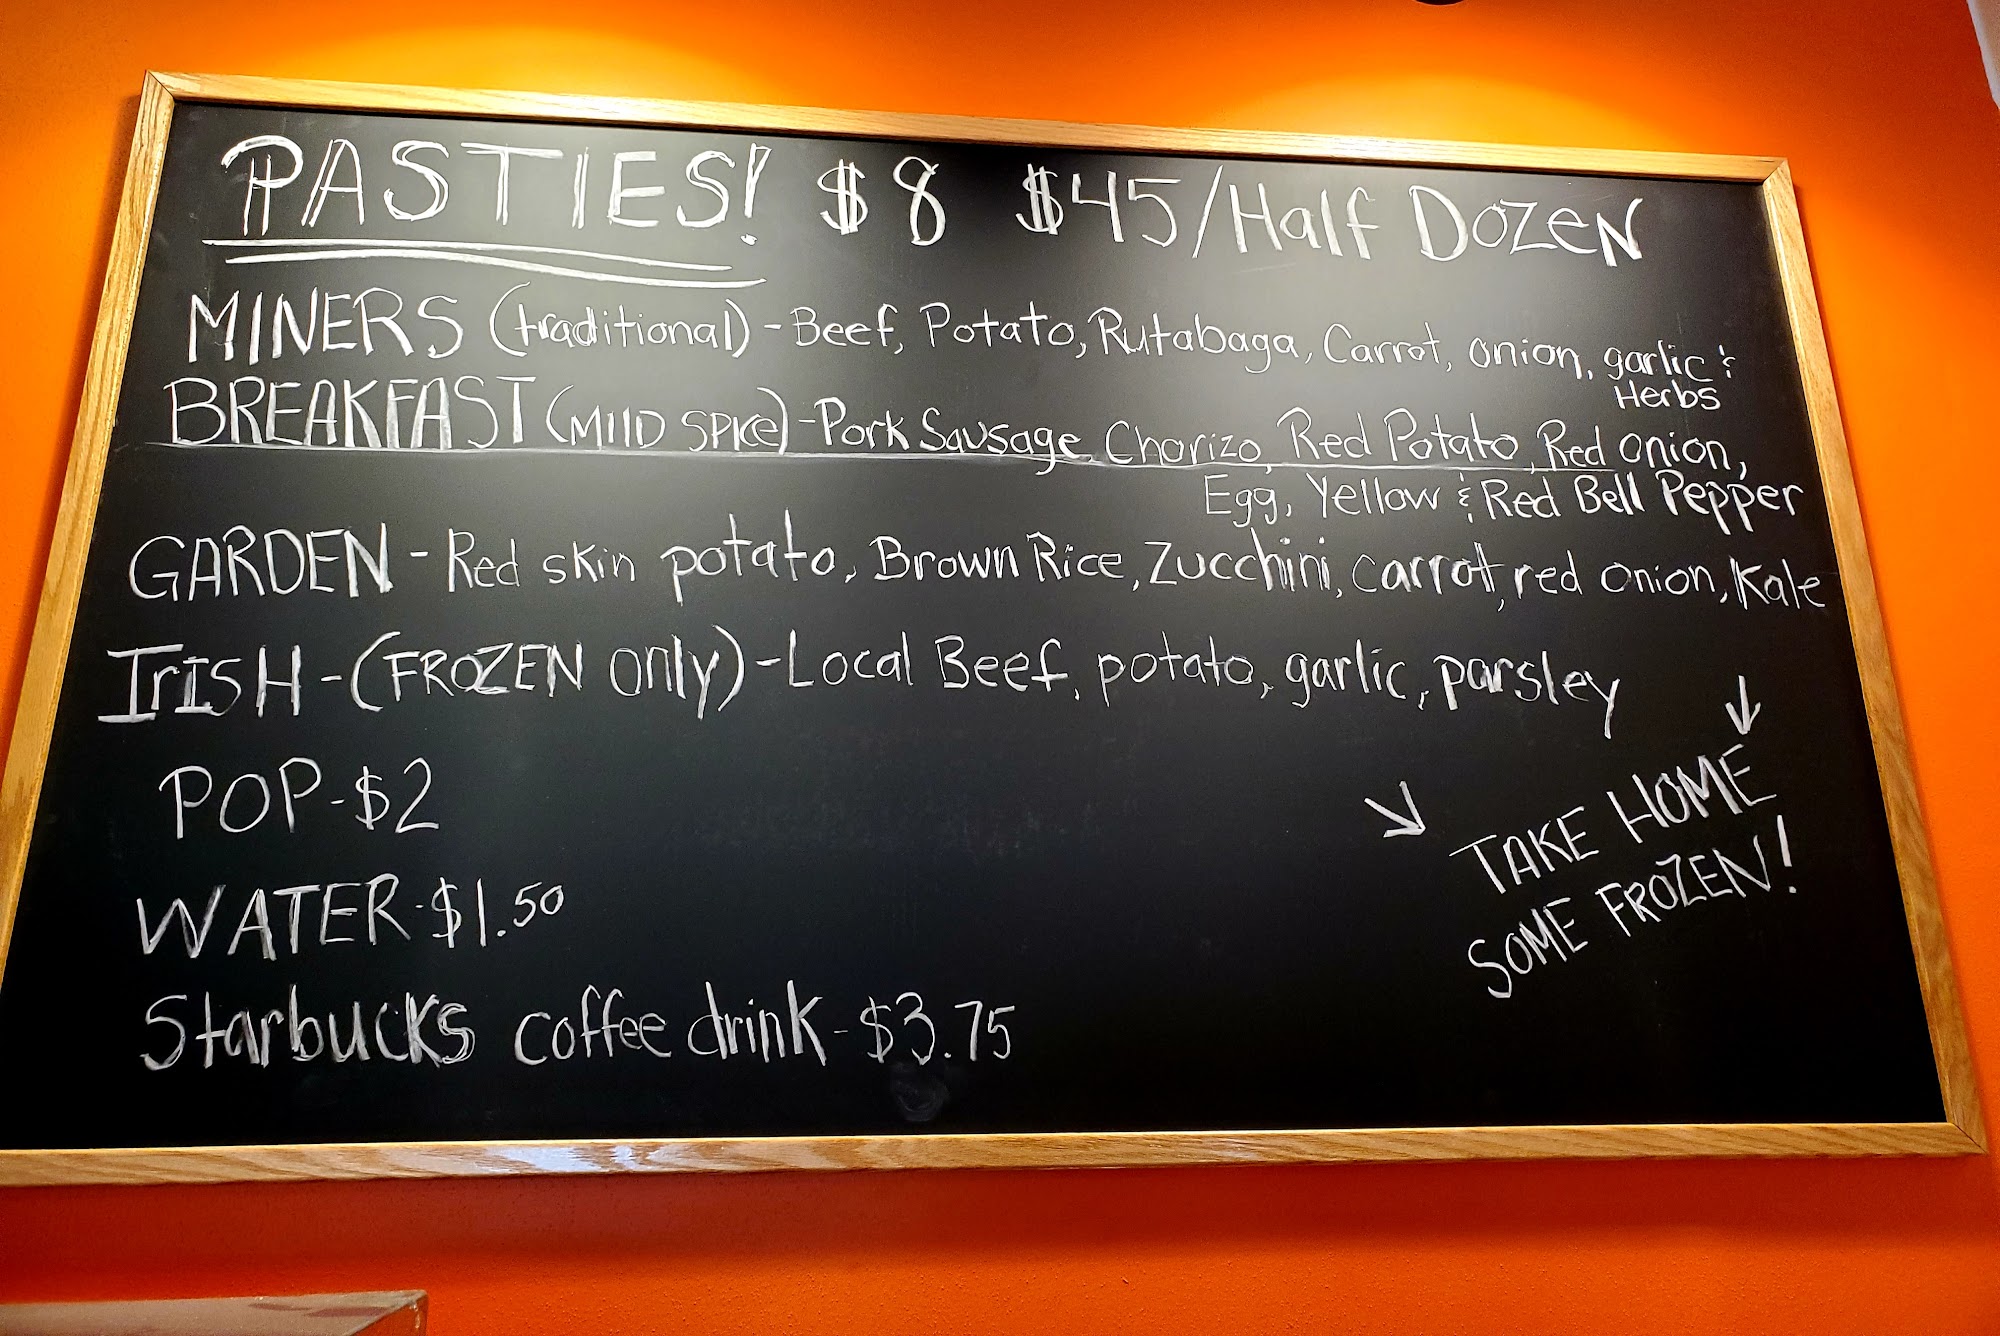 PASTIES! $8 $45/Half DOZEN
MINERS (traditional) - Beef, Potato, Rutabaga, Carrot, onion, garlic &
Herbs
BREAKFAST (MIlD SPICe) - Pork Sausage, Chorizo, Red Potato, Red onion,
Egg, Yellow & Red Bell Pepper
GARDEN - Red skin potato, Brown Rice, Zucchini, carrot, red onion, Kale
IrISH - (FROZEN Only) - Local Beef, potato, garlic, parsley
POP - $2
WATER - $1.50
Starbucks coffee drink - $3.75
TAKE HOME
SOME FROZEN!